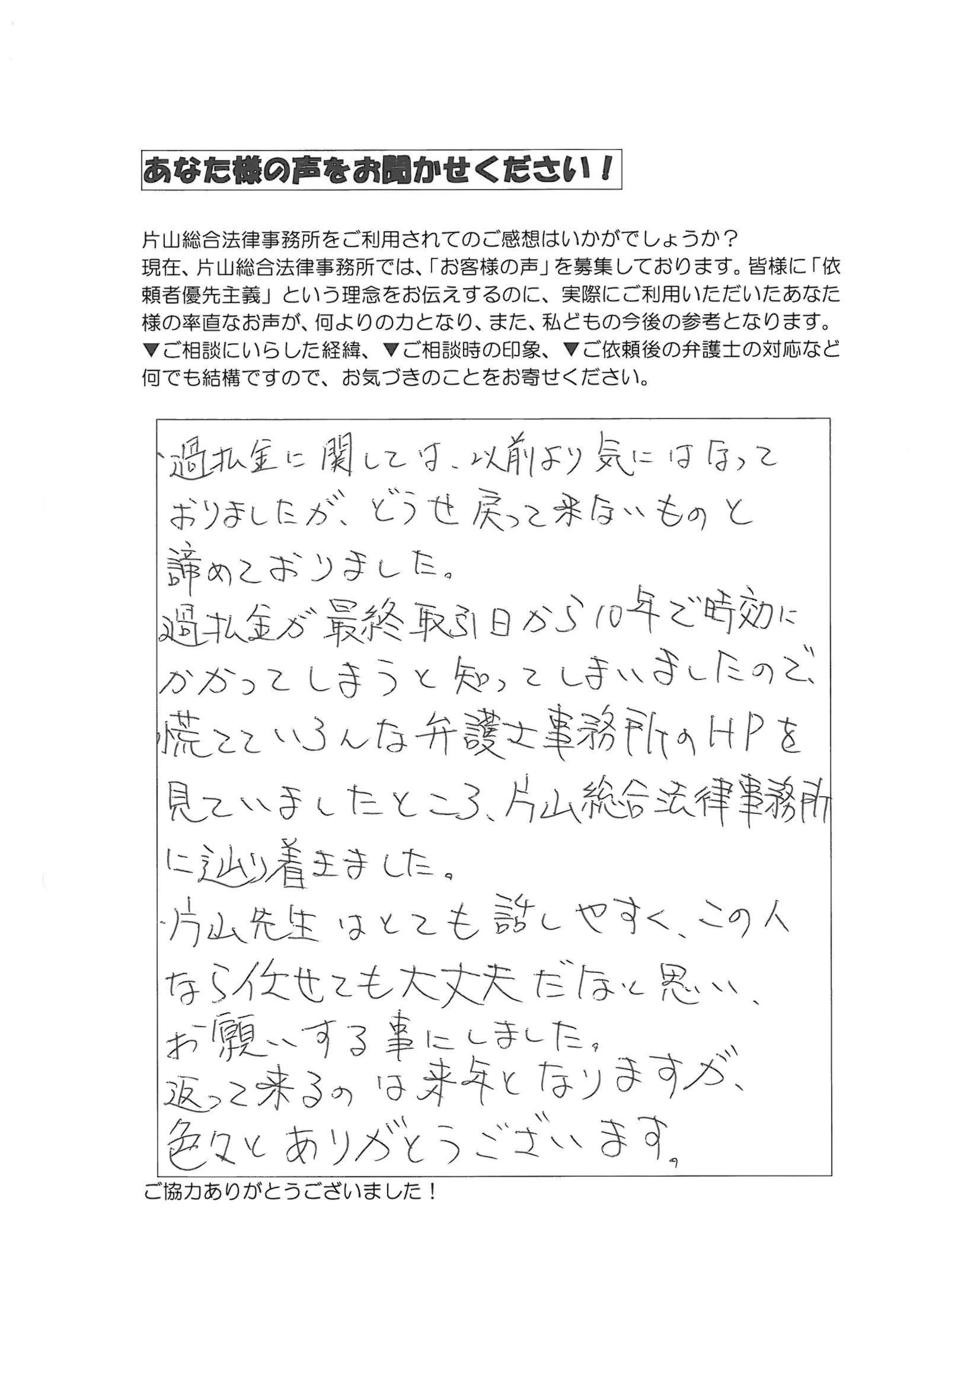 あなた様の声をお聞かせください！
片山総合法律事務所をご利用されてのご感想はいかがでしょうか？
現在、片山総合法律事務所では、「お客様の声」を募集しております。皆様に「依
頼者優先主義」という理念をお伝えするのに、実際にご利用いただいたあなた
様の率直なお声が、何よりの力となり、また、私どもの今後の参考となります。
▼ご相談にいらした経緯、▼ご相談時の印象、▼ご依頼後の弁護士の対応など
何でも結構ですので、お気づきのことをお寄せください。
・過払金に関しては、以前より気にはなって
おりましたが、どうせ戻って来ないものと
諦めておりました。
過払金が最終取引日から10年で時効に
かかってしまうと知ってしまいましたので、
慌てていろんな弁護士事務所のHPを
見ていましたところ、片山総合法律事務所
に辿り着きました。
・片山先生はとても話しやすく、この人
なら任せても大丈夫だなと思い、
お願いする事にしました。
返って来るのは来年となりますが、
色々とありがとうございます。
ご協力ありがとうございました！